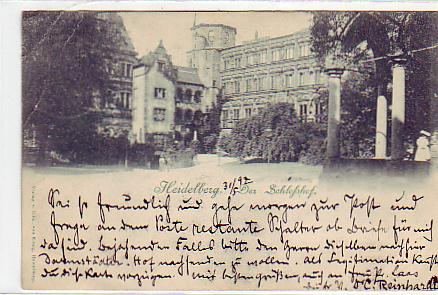 Heidelberg. 31/5 97 Der Schloßhof.
Sei so freundlich und gehe morgen zur Post und
frage an dem Poste restante Schalter ob Briefe für mich
da sind. Bejahenden Falls bitte den Herrn dieselben nach hier
Darmstädter Hof nachsenden zu wollen. Als Legitimation kannst
du diese Karte vorzeigen. Mit besten Grüßen auch an
C. Reinhardt